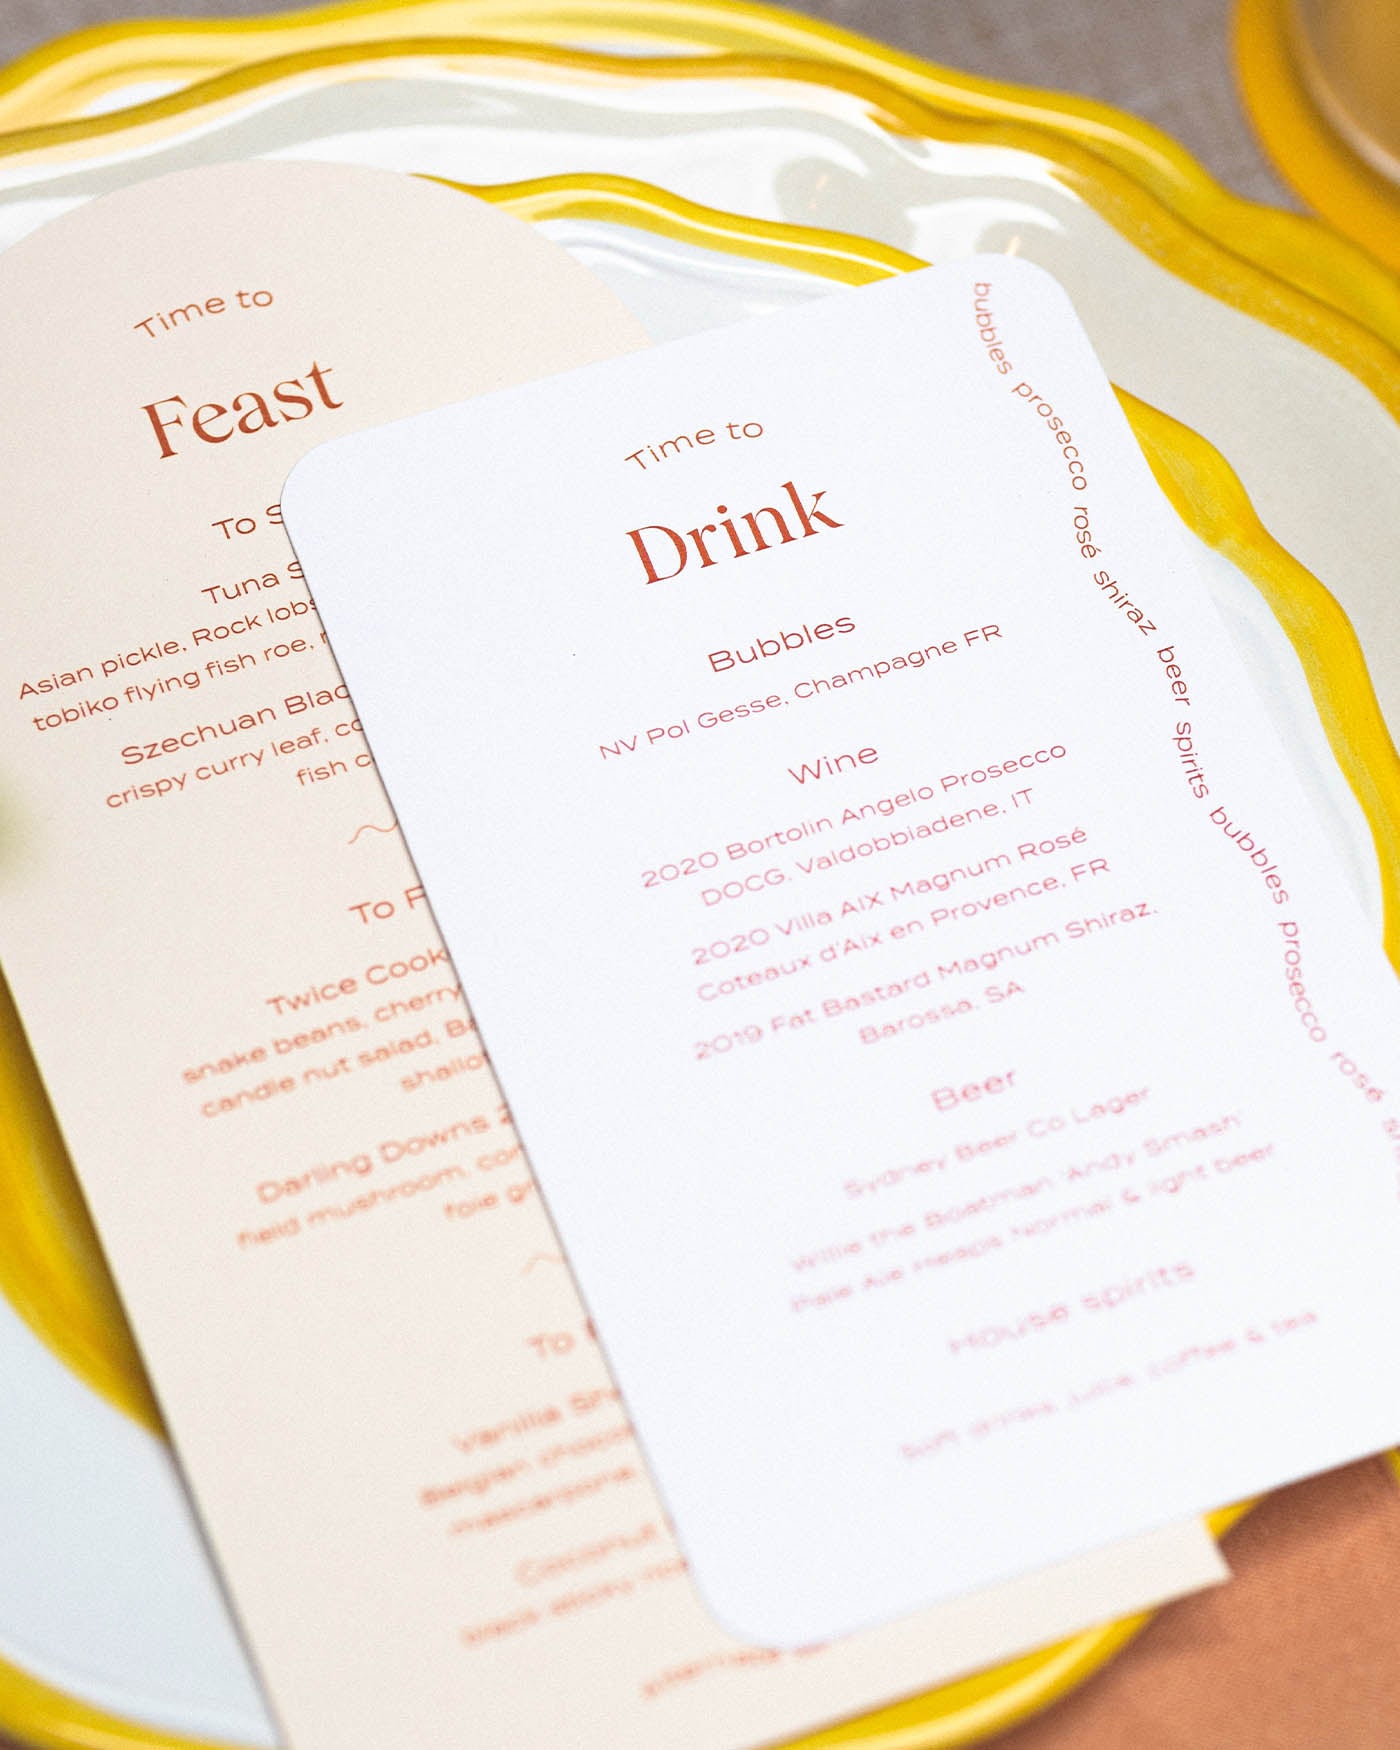 Time to
Feast
To
Tuna
Asian pickle, Rock
tobiko flying fish roe,
Szechuan
crispy curry leaf,
fish
To
Twice
snake beans, cherry
candle nut salad,
Darling Downs
field mushroom,
foie
To
Vanilla
Belgian
mascarpone,
Coconut
black sticky
Time to
Drink
Bubbles
NV Pol Gesse, Champagne FR
Wine
2020 Bortolin Angelo Prosecco
DOCG, Valdobbiadene, IT
2020 Villa AIX Magnum Rosé
Coteaux d'Aix en Provence, FR
2019 Fat Bastard Magnum Shiraz,
Barossa, SA
Beer
Sydney Beer Co Lager
Willie the Boatman 'Andy Smash'
Pale Ale Heaps Normal & light beer
House spirits
Soft drinks, juice, coffee & tea
bubbles prosecco rosé shiraz beer spirits bubbles prosecco rosé